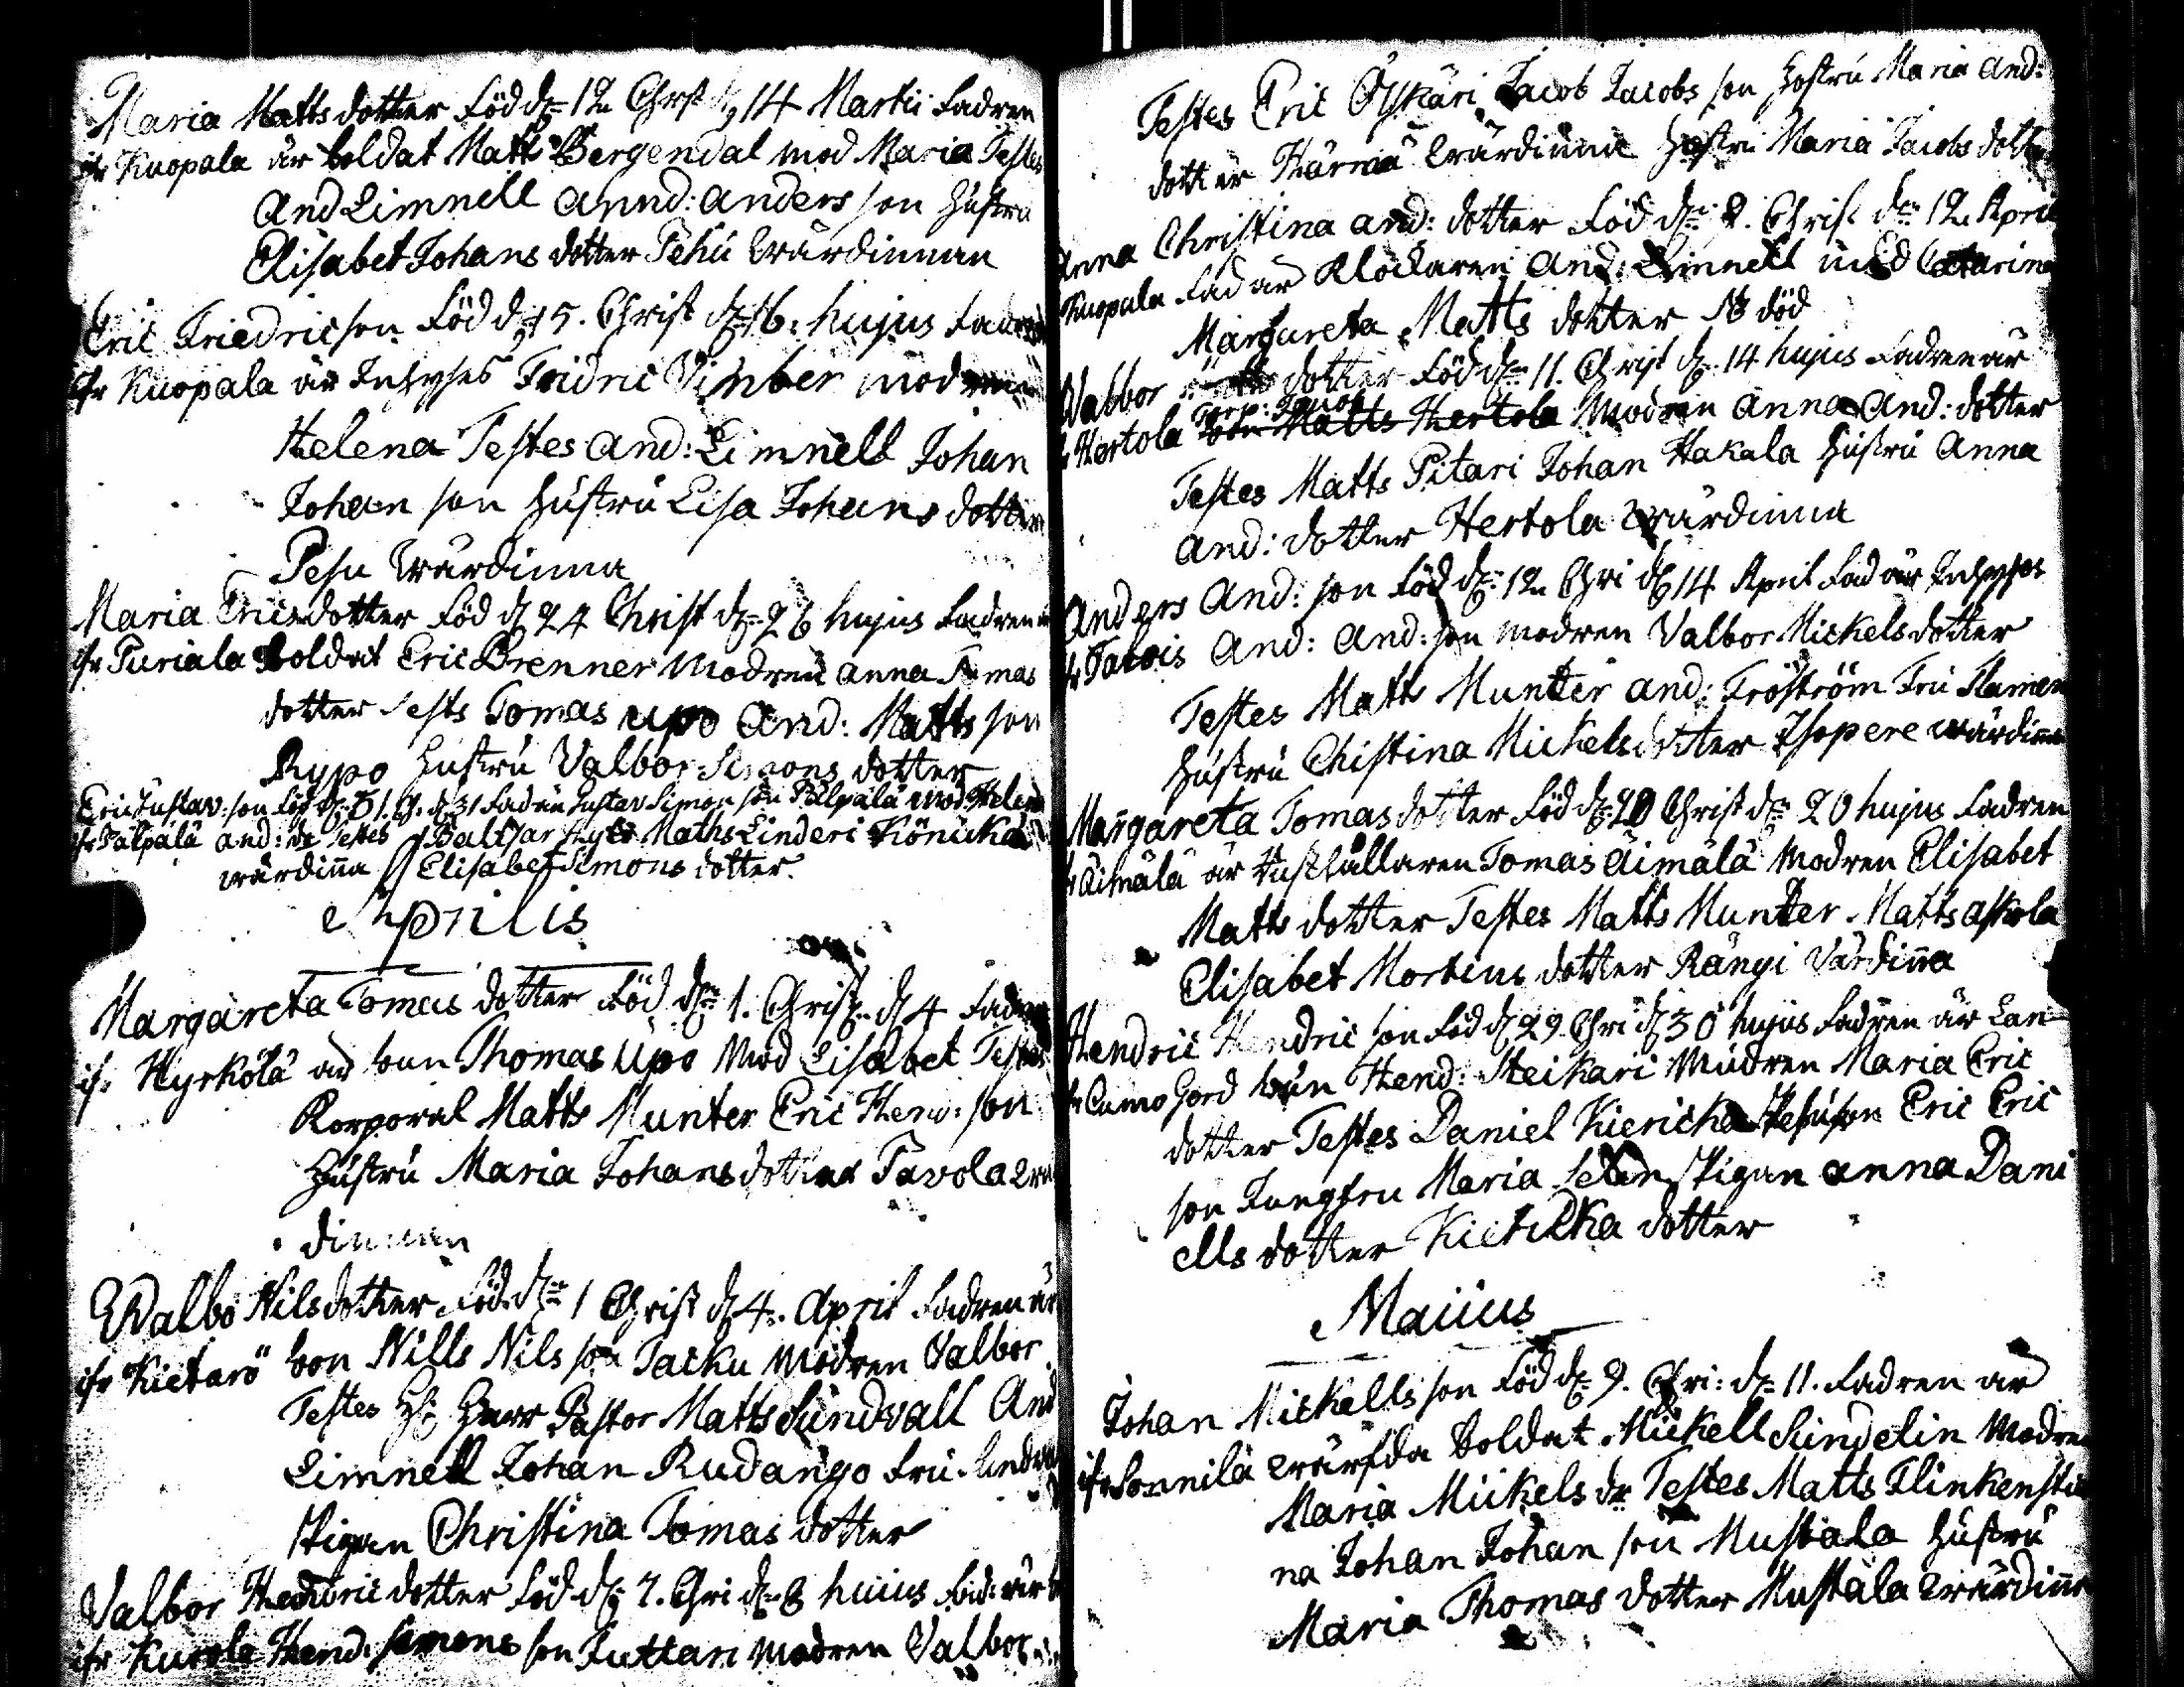 Maria Matts dotter född dn 12 Christ dn 14 Martii Fadren
ifr Kuopala är soldat Matts Bergendal mod Maria Testes
And Limnell Annd: Anders son Hustru
Elisabet Johans dotter Pehu wärdinnan
Eric Friedricson Född dn 15. Christ dn 16. hujus Fadren
ifr Kuopala är Inhyses Fridric Vimber modren
Helena Testes And: Limnell Johan
Johan son hustru Lisa Johans dotter
Pesu wärdinna
Maria Erics dotter Född d 24 Christ dn 26 hujus Fadren
ifr Puriala Soldat Eric Brenner Modren Anna Tomas
dotter Tests Tomas Upo And: Matts son
Rypo Hustru Valbor Simons dotter
Eric Gustav son Född dn 31 Fadren Gustav Simon son Pälpälä mod: Helena
ifr Pälpälä And: dr Testes Baltsar Matths Linderi Könickä
wärdinna Elisabet Simons dotter.
Aprilis
Margareta Tomas dotter Född dn 1. Christ. d 4 Fadren
ifr Hyrkölä är bon Thomas Upo Mod Lisabet Testes
Korporal Matts Munter Eric Hend: son
Hustru Maria Johans dotter Tavola wär
dinnan
Walbo Nils dotter Född dn 1 Christ d 4. April Fadren är
ifr Kietarö bon Nills Nils son Jacku Modren Valbor
Testes Herr Pastor Matts Sundvall And
Limnell Johan Rudängo Fru Sundvall
Pigan Christina Tomas dotter
Valbor Hendric dotter Född dn 7. Chri dn 8 huius Fad: är
ifr Kurola Hend. Simons son Juttari Modren Valbor
Testes Eric Jacob Jacobs son Hustru Maria And:
dotter Härmä wärdinna Hustru Maria Jacobs dotter
Anna Christina And: dotter Född dn 8. Christ dn 12 April
Kuopala Fad är Klockaren And: Limnell mod Catarina
Margareta Matts dotter död
Valbor dotter Född dn 11. Christ dn 14 hujus Fadren är
Torp: Jacob
ifr Hertola Bon Matts Hertola Modren Anna And: dotter
Testes Matts Pitari Johan Hakala Hustru Anna
And: dotter Hertola Wärdinna
Anders And: son Född dn 12 Chri dn 14 April Fad är Inhyses
And: And: son modren Valbor Mickels dotter
Testes Matts Munter And: Fröström Fru
Hustru Christina Mickels dotter wärdinna
Margareta Tomas dotter Född dn 20 Christ dn 20 hujus Fadren
ifr Äimälä är Hushållaren Tomas Äimälä Modren Elisabet
Matts dotter Testes Matts Munter Matts Askola
Elisabet Mortens dotter Rängi Värdinna
Hendric Hendric son Född d 29. Chri d 30 hujus Fadren är Lan
bon Hend: Heikari Modren Maria Eric
dotter Testes Daniel Eric Eric
son Jungfru Maria Pigan Anna Dani
ells dotter dotter
Maiius
Johan Mickells son Född dn 9. Chri: dn 11. Fadren är
ifr Sonnilä wärfda Soldat Mickell Sundelin Modren
Maria Mickels dr Testes Matts
na Johan Johan son Mustala Hustru
Maria Thomas dotter Mustala Wärdinna